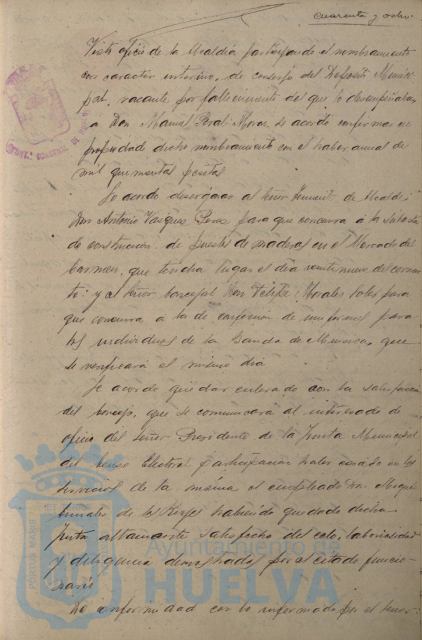 cuarenta y ocho.
Visto oficio de la Alcaldía participando el nombramiento
con caracter interino, de conserje del Depósito Munici-
pal, vacante por fallecimiento del que lo desempeñaba
a Don Manuel Peral Mora se acordó confirmar en
propiedad dicho nombramiento con el haber anual de
mil quinientas pesetas
Se acordó designar al Señor Teniente de Alcalde
Don Antonio Vazquez Perez para que concurra á la subasta
de construcción de puestos de madera en el Mercado del
Carmen, que tendrá lugar el dia veintinueve del corrien-
te y al señor Concejal Don Felipe Morales para
que concurra a la de confección de uniformes para
los individuos de la Banda de Música, que
se verificará el mismo dia
Se acordó quedar enterado con la satisfacción
del Concejo, que se comunicará al interesado de
oficio del señor Presidente de la Junta Municipal
del Censo Electoral participando haber cesado en los
servicios de la misma el empleado Don
de los Reyes habiendo quedado dicha
Junta altamente satisfecha del celo, laboriosidad
y diligencia demostrados por el citado funcio-
nario
De conformidad con lo informado por el señor
Ayuntamiento de
HUELVA
PORTUS MARIS